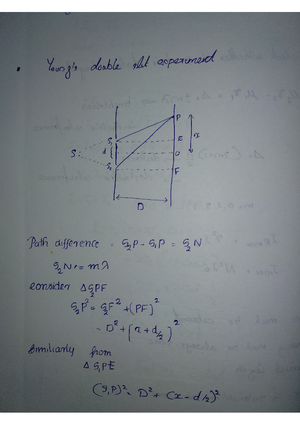 Young's double slit experiment
P
S₁
E
x
S
d
O
S₂
F
D
Path difference = S₂P - S₁P = S₂N
S₂N = mλ
consider △S₂PF
S₂P² = S₂F² + (PF)²
= D² + (x + d/2)²
similarly from
△S₁PE
(S₁P)² = D² + (x - d/2)²